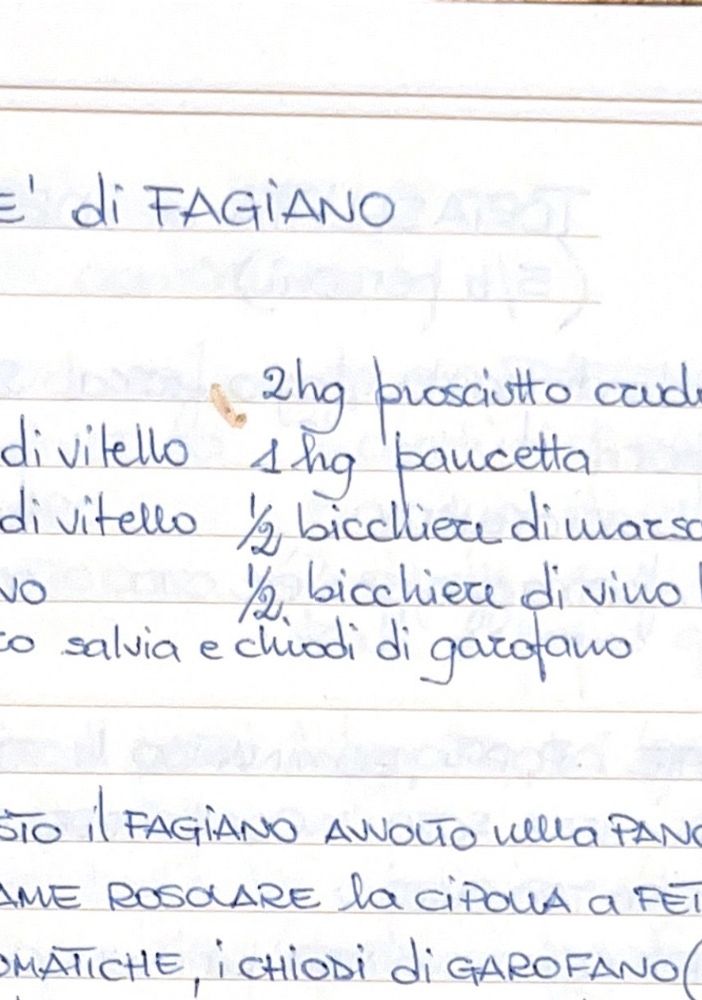 E' di FAGIANO
2hg prosciutto crud
di vitello 1 hg pancetta
di vitello 1/2 bicchiere di marsa
vo 1/2 bicchiere di vino
co salvia e chiodi di garofano
STO il FAGIANO AVVOLTO nella PANC
AME ROSOLARE la CIPOLLA a FET
OMATICHE, i CHIODI di GAROFANO (